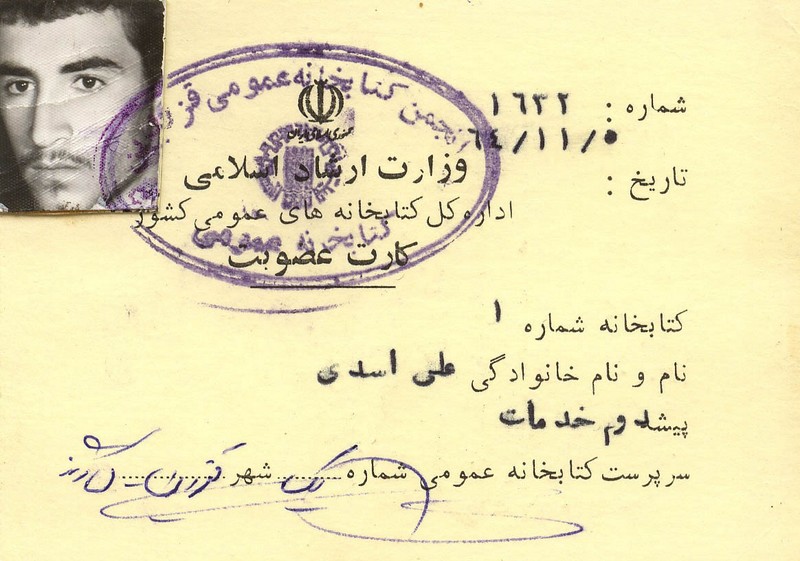 انجمن کتابخانه عمومی
جمهوری اسلامی ایران
شماره : ۱۶۳۲
۶۴/۱۱/۵
تاریخ :
وزارت ارشاد اسلامی
اداره کل کتابخانه های عمومی کشور
کتابخانه عمومی
کارت عضویت
کتابخانه شماره ۱
نام و نام خانوادگی علی اسدی
پیشه دوم خدمات
سرپرست کتابخانه عمومی شماره یک شهر